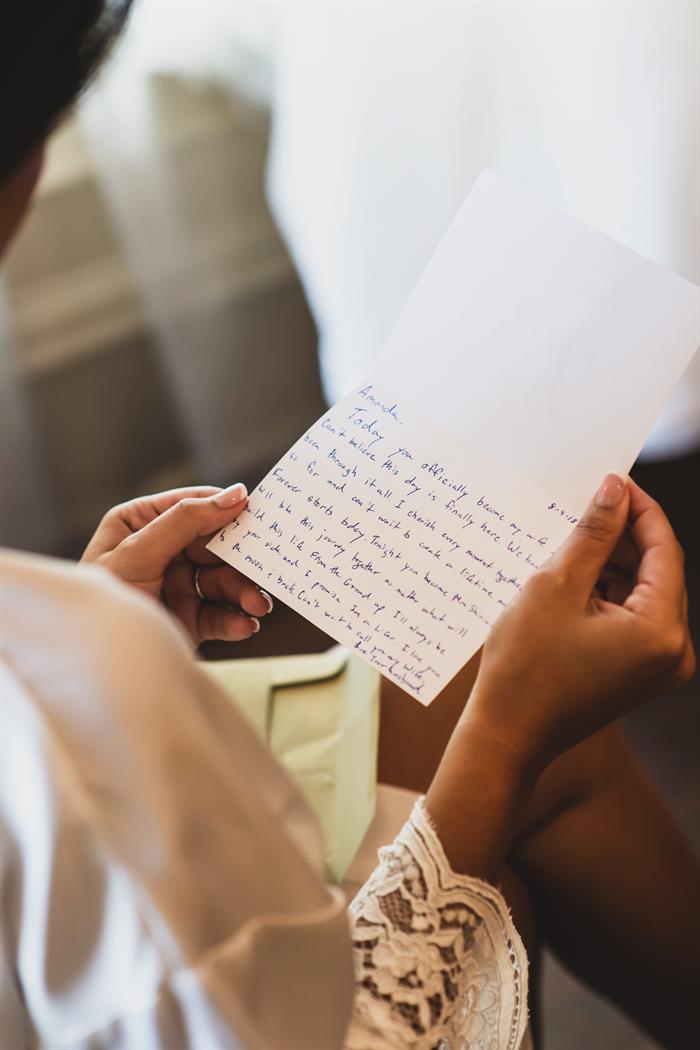 8-9-18
Amanda,
Today you officially become my wife
Can't believe this day is finally here We have
been through it all I cherish every moment together
so far and can't wait to create a lifetime more
Forever starts today. Tonight you become Mrs.
will be this journey together no matter what will
build this life From the Ground up I'll always be
by your side and I promise I'm a I love you
to the moon & back. Can't wait to call you my wife,
Love Your husband